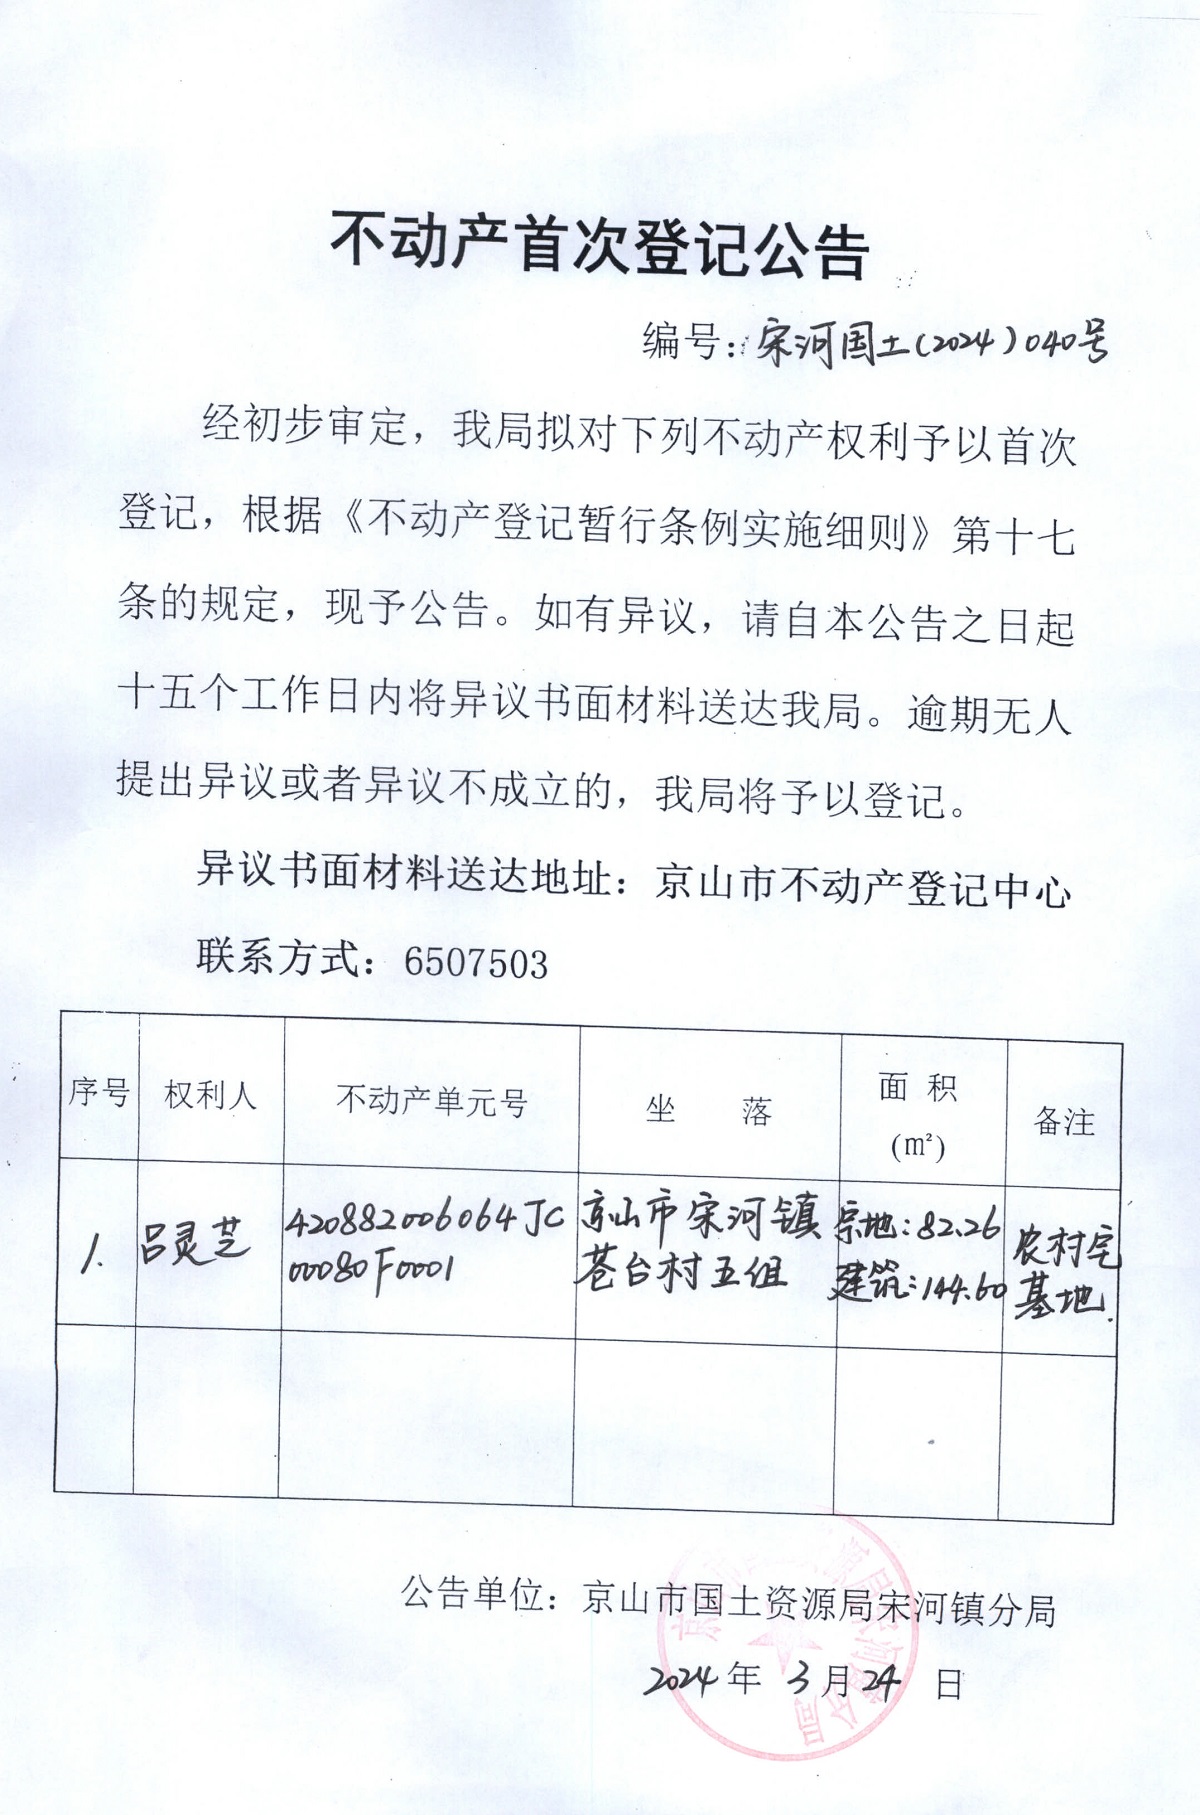 不动产首次登记公告
编号：宋河国土(2024)040号
经初步审定，我局拟对下列不动产权利予以首次
登记，根据《不动产登记暂行条例实施细则》第十七
条的规定，现予公告。如有异议，请自本公告之日起
十五个工作日内将异议书面材料送达我局。逾期无人
提出异议或者异议不成立的，我局将予以登记。
异议书面材料送达地址：京山市不动产登记中心
联系方式：6507503
序号 权利人 不动产单元号 坐 落 面 积 备注
(㎡)
1. 吕灵芝 420882006064JC 京山市宋河镇 宗地：82.26 农村宅
00080F0001 苍台村五组 建筑：144.60 基地.
公告单位：京山市国土资源局宋河镇分局
2024年 3月24 日